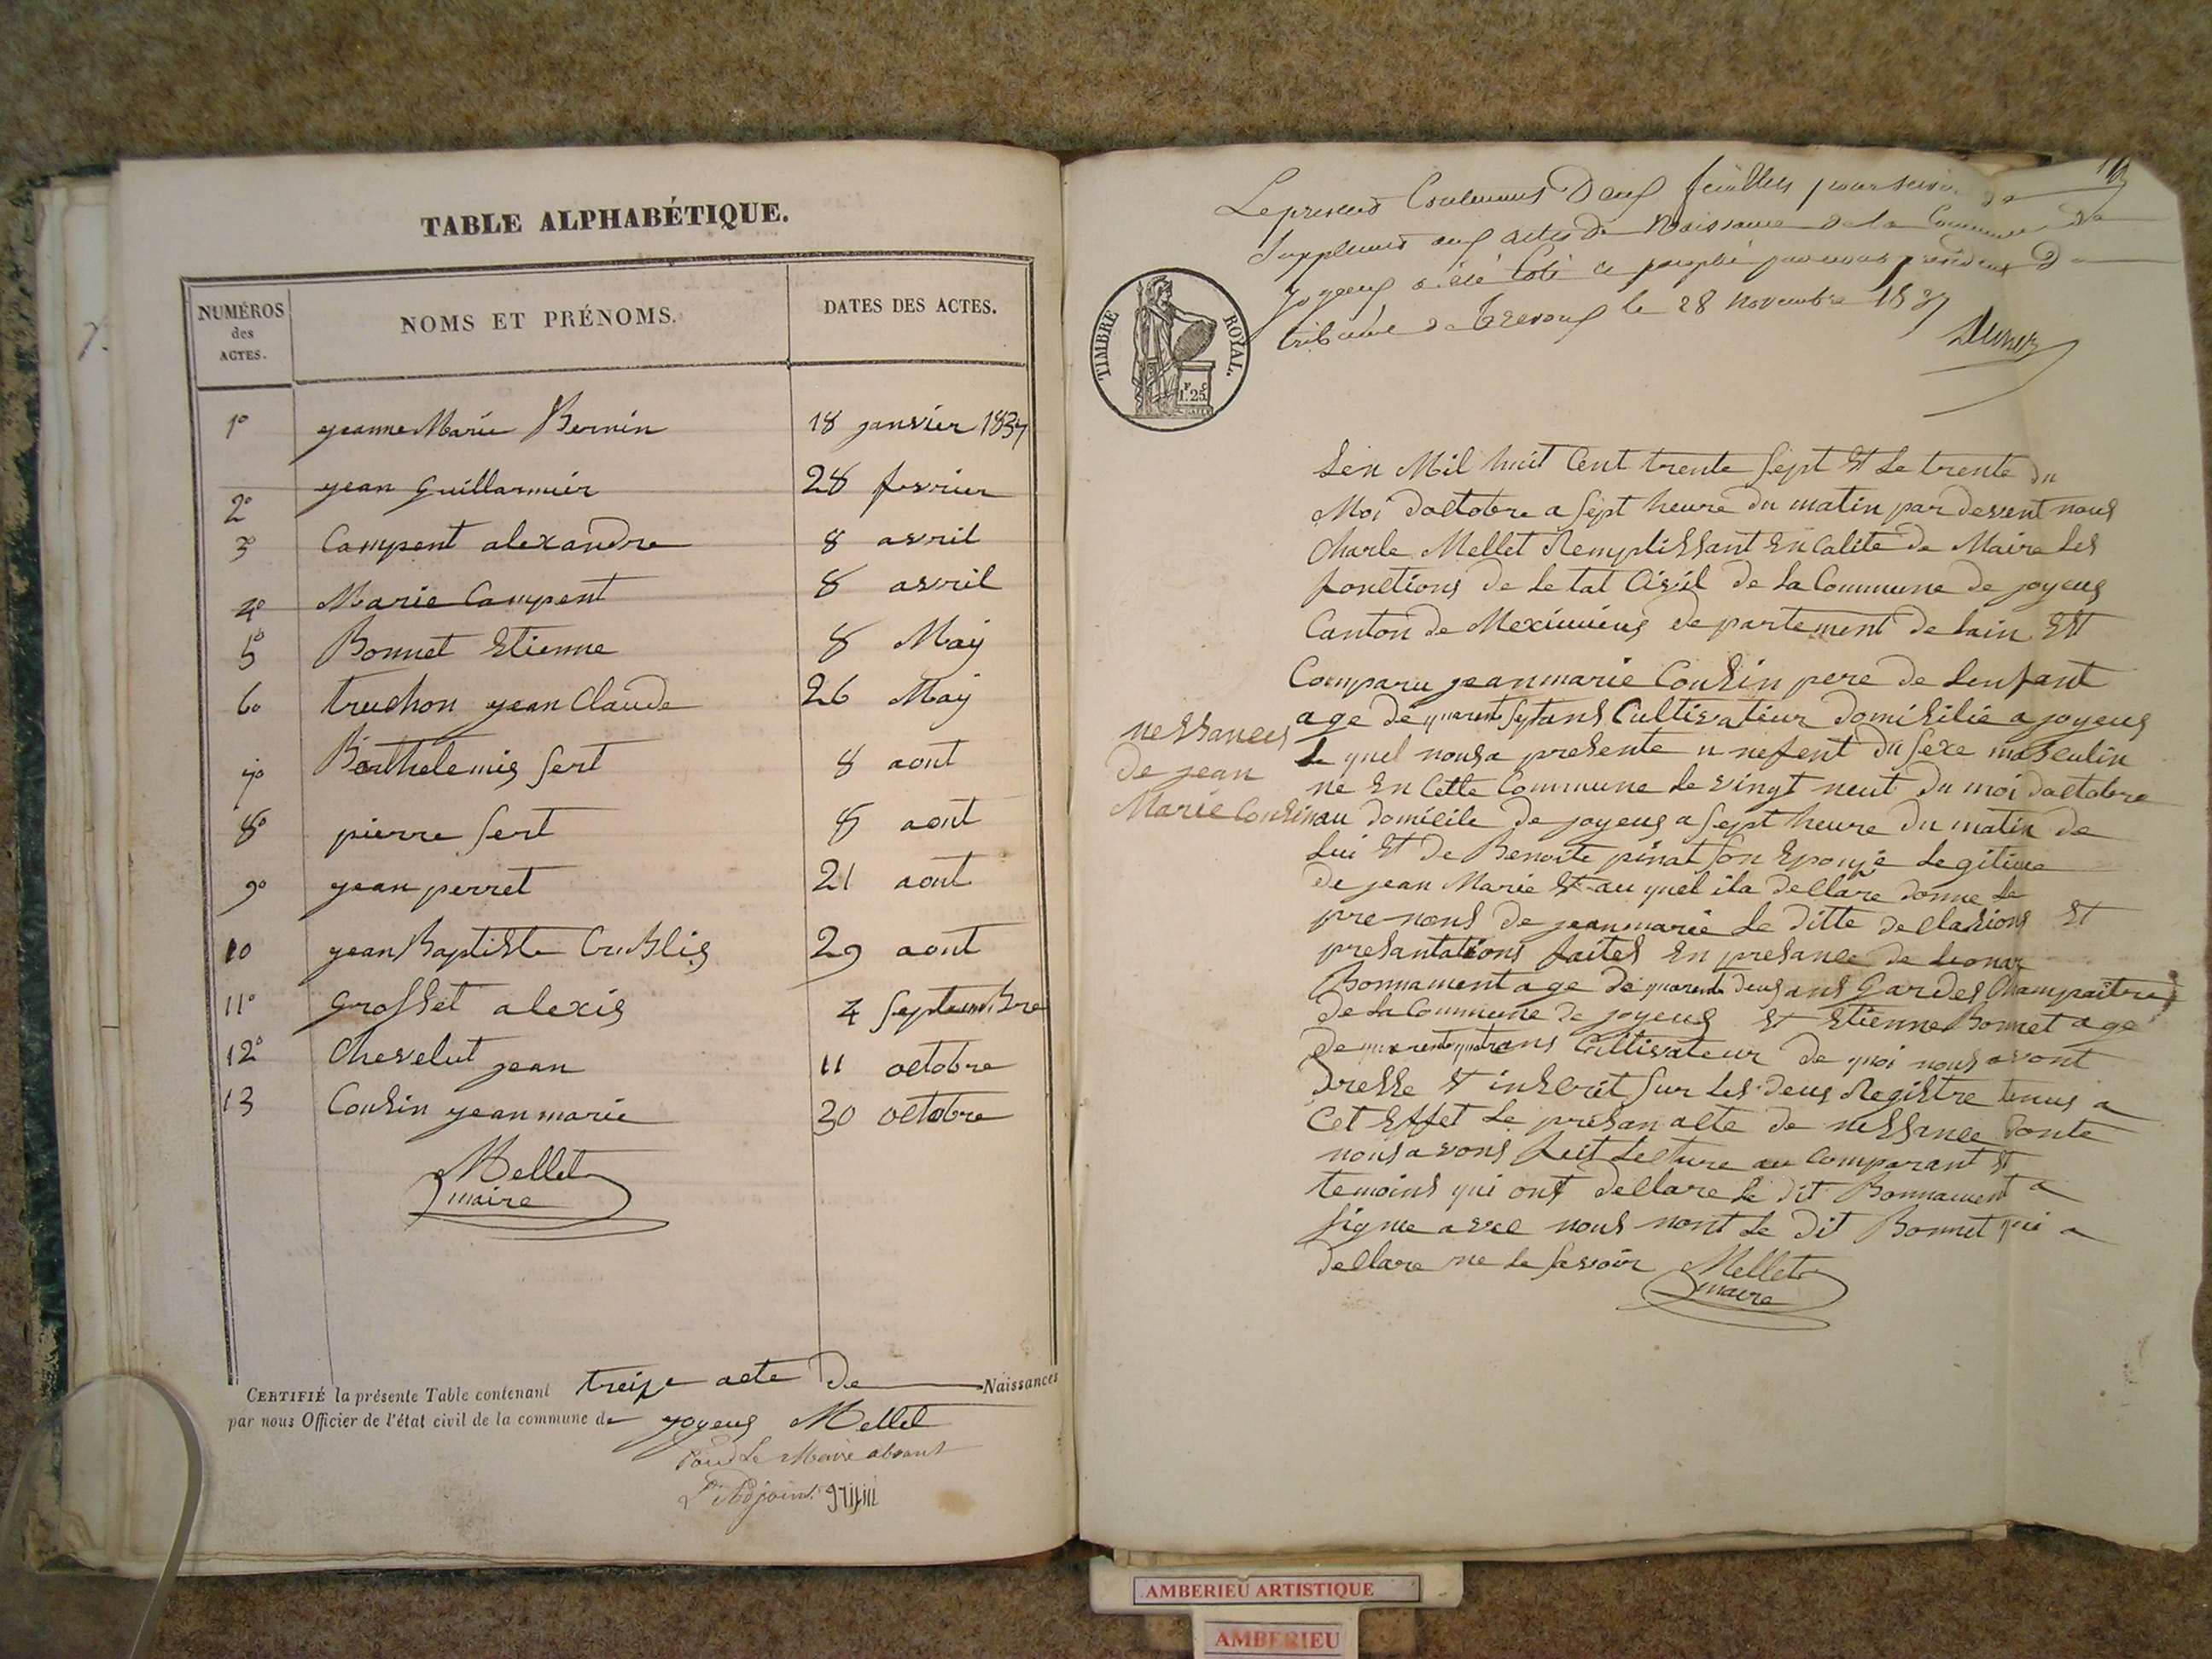 TABLE ALPHABÉTIQUE.
NUMÉROS des ACTES.
NOMS ET PRÉNOMS.
DATES DES ACTES.
1º jeanne Marie Bernin 18 janvier 1837
2º jean Guillarmier 28 fevrier
3º Campent alexandre 8 avril
4º Marie Campent 8 avril
5º Bonnet Etienne 8 May
6º truchon jean Claude 26 May
7º Barthelemis sert 8 aout
8º pierre sert 8 aout
9º jean perret 21 aout
10 jean Baptiste 29 aout
11º Grosset alexis 4 septembre
12º Chevelut jean 11 octobre
13 Cousin jean marie 30 octobre
Mellet
maire
CERTIFIÉ la présente Table contenant treize acte de Naissances
par nous Officier de l'état civil de la commune de joyeux Mellet
Pour Le Maire absant
L'Adjoint
Le present Contenant Deux feuilles pour servir de
Supplement aux actes de Naissance de la Commune de
Joyeux a été Coté et paraphé par nous président du
tribunal de Trevoux le 28 novembre 1837
TIMBRE ROYAL.
F. C.
1.25
Len Mil huit Cent trente sept Et Le trente du
Moi doctobre a sept heure du matin par devent nous
Charle Mellet Remplissant En Calite de Maire Les
fonctions de Le tat Civil de La Commune de joyeux
Canton de Meximieux departement de Lain Est
Comparu jean marie Cousin pere de Lenfant
age de quarente sept ans Cultivateur domisilié a joyeux
Le quel nous a presente u nefent du sexe masculin
ne En Cette Commune Le vingt neuf du moi doctobre
nessances
de jean
Marie Cousin
au domicile de joyeux a sept heure du matin de
Lui Et de Benoite pinat son Epouse Legitime
de jean Marie Et au quel ila dellare donne Le
pre noms de jean marie Le ditte dellasions Et
presantations faites En presance de Leonar
Bonnament age de quarente deux ans Gardes Champaitre
de La Commune de joyeux Et Etienne Bonnet age
de quarente quatre ans Cultivateur de quoi nous avont
dresse Et inscrit sur Les deux Registre tenus a
Cet Effet Le presan acte de nessance donte
nous avons feit Lecture au Comparant Et
temoins qui ont dellare Le dit Bonnament a
signe avec nous nont Le dit Bonnet qui a
dellare ne Le savoir Mellet
maire
AMBERIEU ARTISTIQUE
AMBERIEU